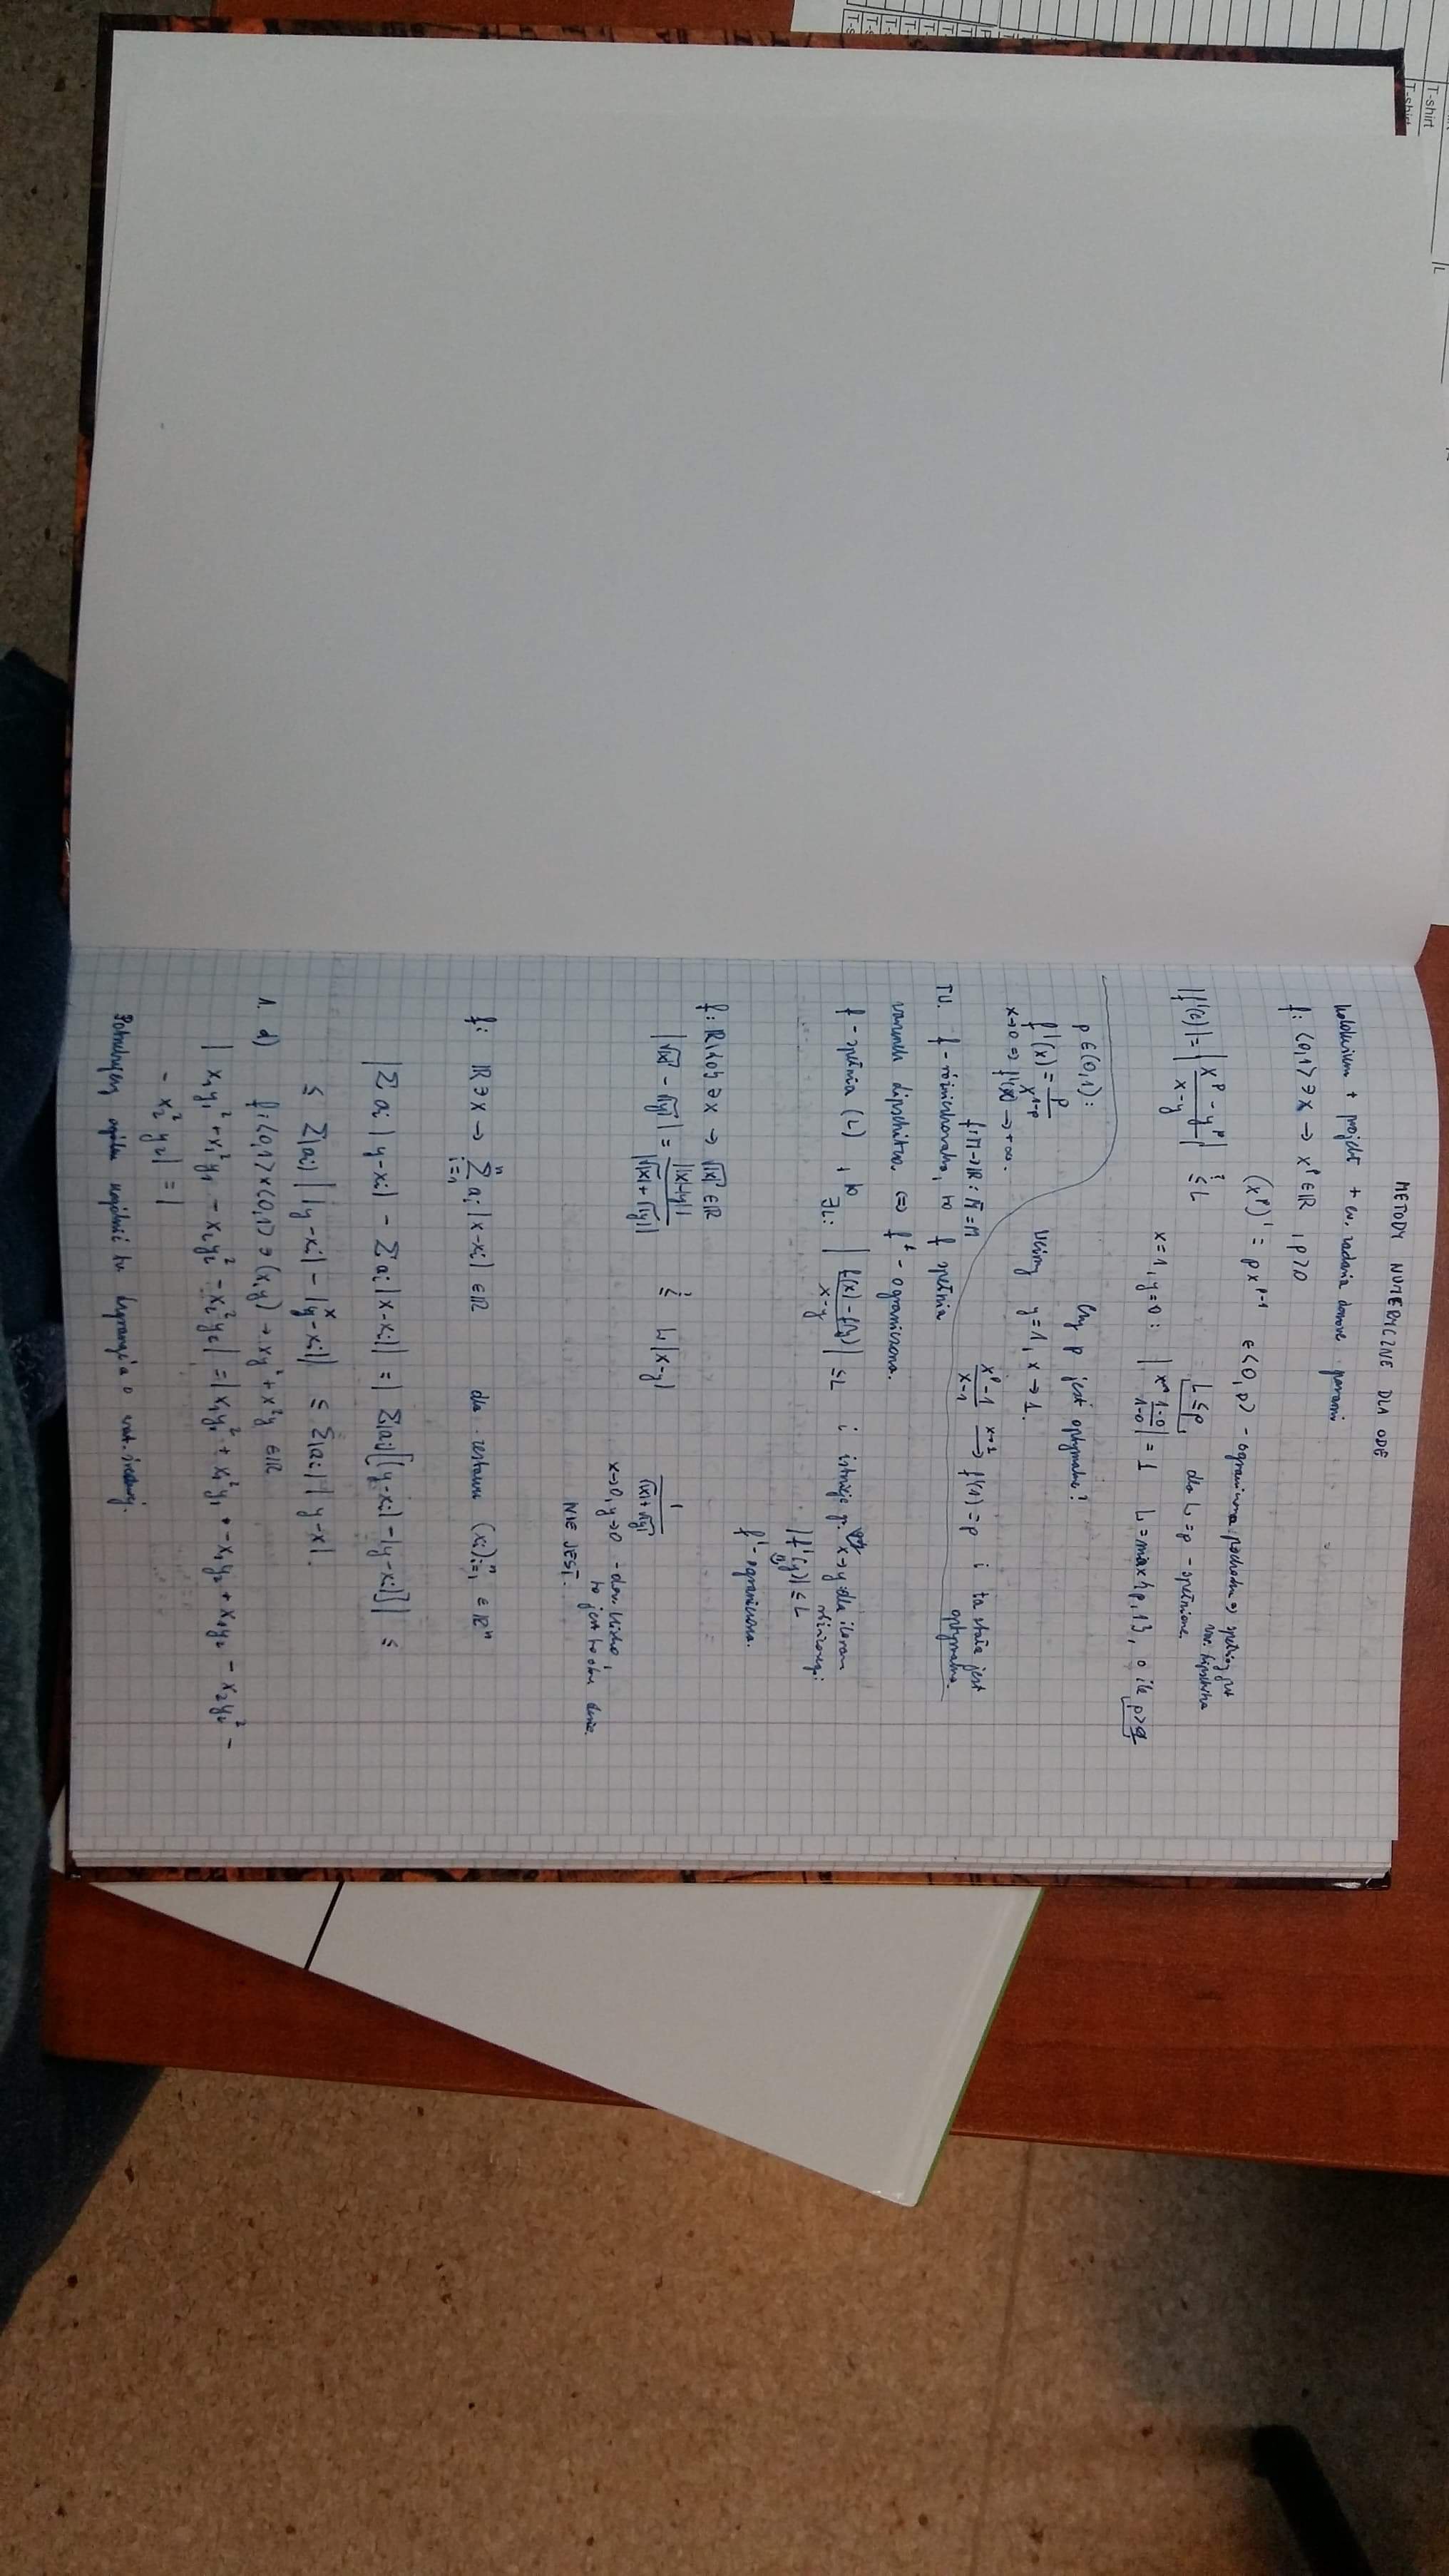 T-shirt
L
T-shirt
METODY NUMERYCZNE DLA ODE
kolokwium + projekt + ew. zadania domowe parami
f: <0,1> ∋ x → x^p ∈ ℝ , p>0
(x^p)' = p x^{p-1} ∈ <0, p> - ograniczona pochodna => spełniony jest
war. Lipschitza
|f'(c)| = |(x^p - y^p)/(x-y)| ≤? L
L ≤ p dla L = p - spełnione.
x=1, y=0: |(1-0)/(1-0)| = 1 L = max{p,1}, o ile p>1
p ∈ (0,1):
f'(x) = p/x^{1-p}
x→0 => f'(x) → +∞.
Czy p jest optymalne?
Weźmy y=1, x → 1.
(x^p - 1)/(x-1) →^{x→1} f'(1) = p i ta stała jest
optymalna.
f: M→ℝ : M̄ = M
TW. f - różniczkowalna, to f spełnia
warunek Lipschitza <=> f' - ograniczona.
f - spełnia (L) , to ∃L: |(f(x) - f(y))/(x-y)| ≤ L i istnieje gr. x→y dla ilorazu
różnicowego:
|f'(y)| ≤ L
f' - ograniczona.
f: ℝ\{0} ∋ x → √|x| ∈ ℝ
|√|x| - √|y|| = ||x|-|y||/|√|x| + √|y|| ≤? L|x-y| 1/(√|x| + √|y|)
x→0, y→0 - dow. blisko,
to jest
NIE JEST.
f: ℝ ∋ x → Σ_{i=1}^n a_i |x-x_i| ∈ ℝ dla zestawu (x_i)_{i=1}^n ∈ ℝ^n
|Σ a_i |y-x_i| - Σ a_i |x-x_i|| = |Σ|a_i|[|y-x_i| - |y-x_i|]| ≤
≤ Σ|a_i| ||y-x_i| - |x-x_i|| ≤ Σ|a_i| |y-x|.
1. d) f: <0,1>×<0,1> ∋ (x,y) → xy² + x²y ∈ ℝ
|x₁y₁² + x₁²y₁ - x₂y₂² - x₂²y₂| = |x₁y₁² + x₁²y₁ + -x₁y₂ + x₁y₂ - x₂y₂² -
- x₂² y₂| = |
Potrzebujemy uogólnić tw. Lagrange'a o wart. średniej.